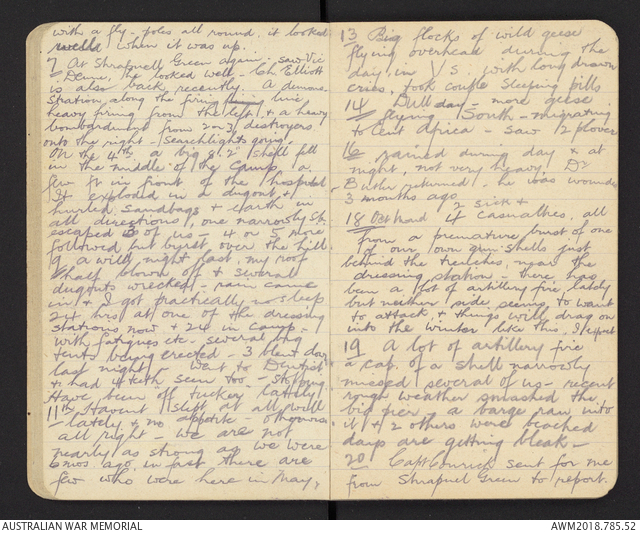 with a fly - poles all round, it looked
well when it was up.
7 At Shrapnell Green again - saw Vic
Denne, he looked well - Ch. Elliott
is also back recently. A demon-
stration along the firing line,
heavy firing from the left, & a heavy
bombardment from 2 or 3 destroyers
onto the right - Searchlights going.
On the 4th a big 8.2" shell fell
in the middle of the camp, a
few ft in front of the hospital
It exploded in a dugout &
hurled sandbags & earth in
all directions, one narrowly
escaped 3 of us - 4 or 5 more
followed but burst over the hill.
9 a wild night last, my roof
half blown off & several
dugouts wrecked - rain came
in & I got practically no sleep
24 hrs at one of the dressing
stations now & 24 in camp -
with fatigues etc. several big
tents being erected - 3 blew down
last night. Went to Dentist
& had teeth seen too - stopping
Have been off tucker lately
11th Havent slept at all well
lately & no appetite - otherwise
all right - we are not
nearly as strong as we were
6 mos ago, in fact there are
few who were here in May,
13 Big flocks of wild geese
flying overhead during the
day in VS. with long drawn
cries, took couple sleeping pills
14 Dull day - more geese
flying South - migrating
to Cent Africa - saw 12 plover
16 rained during day & at
night, not very heavy. Dr
Butler returned - he was wounded
3 months ago
2 sick &
18 Oct Hard 4 casualties, all
from a premature burst of one
of our own gun shells just
behind the trenches, near the
dressing station - there has
been a lot of artillery fire lately
but neither side seems to want
to attack & things will drag on
into the winter like this. I expect
19 A lot of artillery fire
a cap of a shell narrowly
missed several of us - recent
rough weather smashed the
big pier, a barge ran into
it & 2 others were beached
days are getting bleak -
20 Capt sent for me
from Shrapnel Green to report.
AUSTRALIAN WAR MEMORIAL
AWM2018.785.52